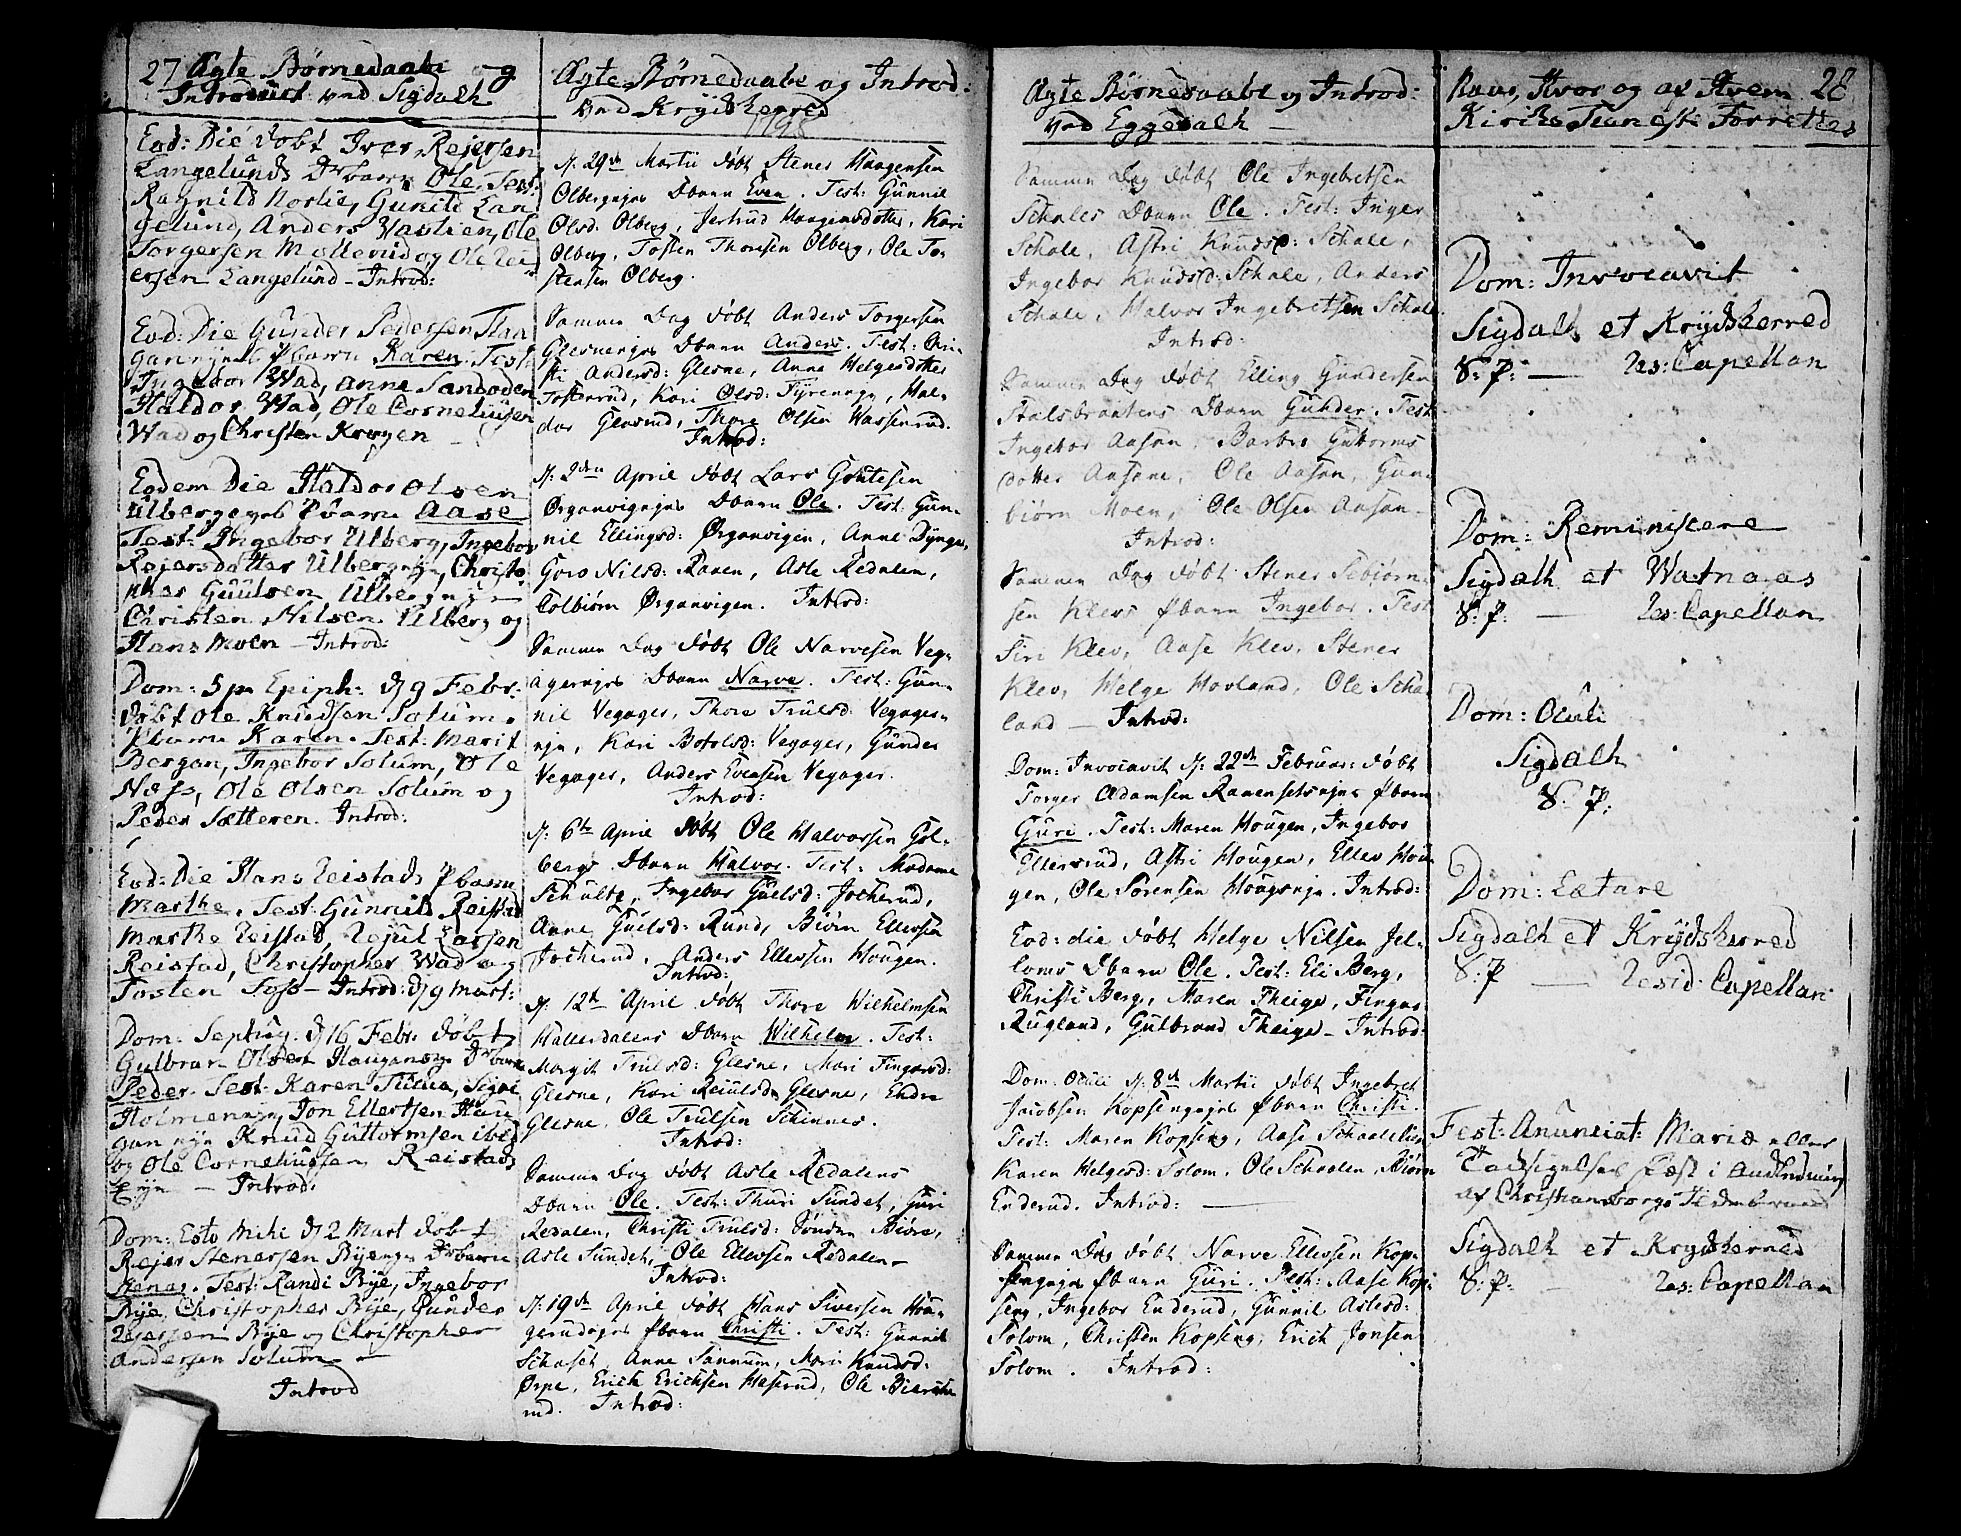 27 Ægte Börnedaabe og
Introduct ved Sigdalh
Eod: Die döbt Iver Rejersen
Langelunds Drbarn Ole. Test.
Ragnild Norlie, Gunild Lan
gelund, Anders Wastien, Ole
Torgersen Mollerud og Ole Rei
ersen Langelund - Introd:
Eod: Die Gunder Pedersen Hau
gan ejns Pbarn Karen. Test.
Ingebor Wad, Anne Sandaden
Haldor Wad, Ole Corneliusen
Wad og Christen Krogen
Eodem Die Haldor Olsen
Ulberg ejns Pbarn Aase
Test: Ingebor Ulberg, Ingebor
Rejersdatter Ulberg ejn, Christo
pher Guulsen Ulberg ejn
Christen Nilsen Ulberg og
Hans Moen - Introd:
Dom: 5 p. Epiph: d 9 Febr.
döbt Ole Knudsen Solum.
Pbarn Karen. Test: Marit
Bergan, Ingebor Solum, Ole
Næss, Ole Olsen Solum og
Peder Sætteren. Introd:
Eod: Die Hans Reistads Pbarn
Marthe. Test: Gunnild Reistad
Marthe Reistad, Rejul Larsen
Reistad, Christopher Wad og
Tosten Foss - Introd: d 9 Mart:
Dom: Septuag. d 16 Febr. döbt
Gulbran Olsen Haugans ejn Drbarn
Peder. Test: Karen Tuua, Signi
Holmen ejn, Jon Ellertsen Hau
gan ejn Knud Guttormsen ibid
og Ole Corneliusen Reistads
Ejn - Introd:
Dom: Esto Mihi d 2 Mart döbt
Rejer Stenersen Bye ejn Drbarn
Henag. Test: Randi Bye, Ingebor
Bye, Christopher Bye, Gunder
Iversen Bye og Christopher
Andersen Solum -
Introd
Ægte Börnedaabe og Introd:
ved Krydsherred
1798
d: 29de Martii döbt Stener Haagensen
Olbergejes Dbarn Even. Test: Gunnil
Olsd: Olberg, Jertrud Haagensdotter, Kari
Olberg, Tosten Thoresen Olberg, Ole To-
stensen Olberg.
Samme Dag döbt Anders Torgersen
Glesneejes Dbarn Anders. Test: Chri-
sti Andersd: Glesne, Anne Helgesdotter
Tosterud, Kari Olsd: Tyreneje, Hal-
dor Glesrud, Thore Olsen Hassenrud.
Introd:
d: 2den April döbt Lars Goutesen
Örganvigejes Dbarn Ole. Test: Gun-
nil Ellingsd: Örganvigen, Anne Dynge,
Goro Nilsd: Raaen, Asle Redalen,
Tolbiörn Örganvigen. Introd:
Samme Dag döbt Ole Narvesen Veg-
agerejes Dbarn Narve. Test: Gun-
nil Vegager, Thore Trulsd: Vegager-
eje, Kari Botolsd: Vegager, Gunder
Vegager, Anders Evensen Vegager.
Introd:
d: 6te April döbt Ole Halvorsen Gol-
bergs Dbarn Halvor. Test: Madame
Schultz, Ingebor Guulsd: Jocherud,
Anne Guulsd: Rund, Biörn Ellevsen
Jocherud, Anders Ellevsen Hougen.
Introd:
d: 12te April döbt Thore Wilhelmsen
Hallerdalens Dbarn Wilhelm. Test:
Margit Trulsd: Glesne, Mari Fingarsd:
Glesne, Kari Reiulsd Glesne, Endre
Glesne, Ole Trulsen Schinnes.
Introd:
Samme Dag döbt Asle Redalens
Dbarn Ole. Test: Thuri Sundet, Guri
Redalen, Christi Trulsd: Söndre Biöre,
Asle Sundet, Ole Ellevsen Redalen
Introd:
d: 19de April döbt Hans Siversen Hou-
gerudejes Pbarn Christi. Test: Gunnil
Schaset, Anne Sannum, Mari Knudsd:
Örpe, Erich Erichsen Haserud, Ole Bierche
rud. Introd:
Ægte Börnedaabe og Introd:
ved Eggedalh -
Samme Dag döbt Ole Ingebretsen
Schales Dbarn Ole. Test: Inger
Schale, Astri Knudsd: Schale,
Ingebor Knudsd: Schale, Anders
Schale, Halvor Ingebretsen Schale
Introd:
Samme Dag döbt Elling Gundersen
Stalsbraatens Dbarn Gunder. Test:
Ingebor Aasan, Barbro Gutorms
dotter Aasane, Ole Aasan, Gun-
biörn Moen, Ole Olsen Aasan.
Introd:
Samme Dag döbt Stener Sebjörn-
sen Klevs Pbarn Ingebor. Test
Siri Klev, Aase Klev, Stener
Klev, Helge Hovland, Ole Scha-
land - Introd:
Dom: Invocavit d: 22de Februar: döbt
Torger Adamsen Ranensetsejes Pbarn
Guri. Test: Maren Hougen, Ingebor
Ellersrud, Astri Hougen, Ellev Hou
gen, Ole Sörensen Hougseje. Introd:
Eod: die döbt Helge Nilsen Jel-
loms Dbarn Ole. Test: Eli Berg,
Christi Berg, Maren Theige, Fingar
Rugland, Gulbrand Theige - Introd:
Dom: Oculi d: 8de Martii döbt Ingebret
Jacobsen Kopsengejes Pbarn Christi.
Test: Maren Kopseng, Aase Schaalelien
Karen Helgesd: Solom, Ole Schaalen, Biörn
Enderud. Introd:
Samme Dag döbt Narve Ellevsen Kop-
sengejes Pbarn Guri. Test: Aase Kop-
seng, Ingebor Enderud, Gunnil Aslesd:
Solom, Christen Kopseng, Erich Jonsen
Solom. Introd:
Naar, Hvor og af Hvem 28
Kirke Tieneste Forrettes
Dom: Invocavit
Sigdalh et Krydsherred
S: P: — Res: Capellan
Dom: Reminiscere
Sigdalh et Watnaas
S: P. — Res: Capellan
Dom: Oculi
Sigdalh
S. P:
Dom: Lætare
Sigdalh et Krydsherred
S: P — Resid: Capellan
Fest: Anunciat: Mariæ eller
Tacksigelses Fæst i Anledning
af Christiansborgs
Sigdalh et Krydsherred
S: P: — Res: Capellan